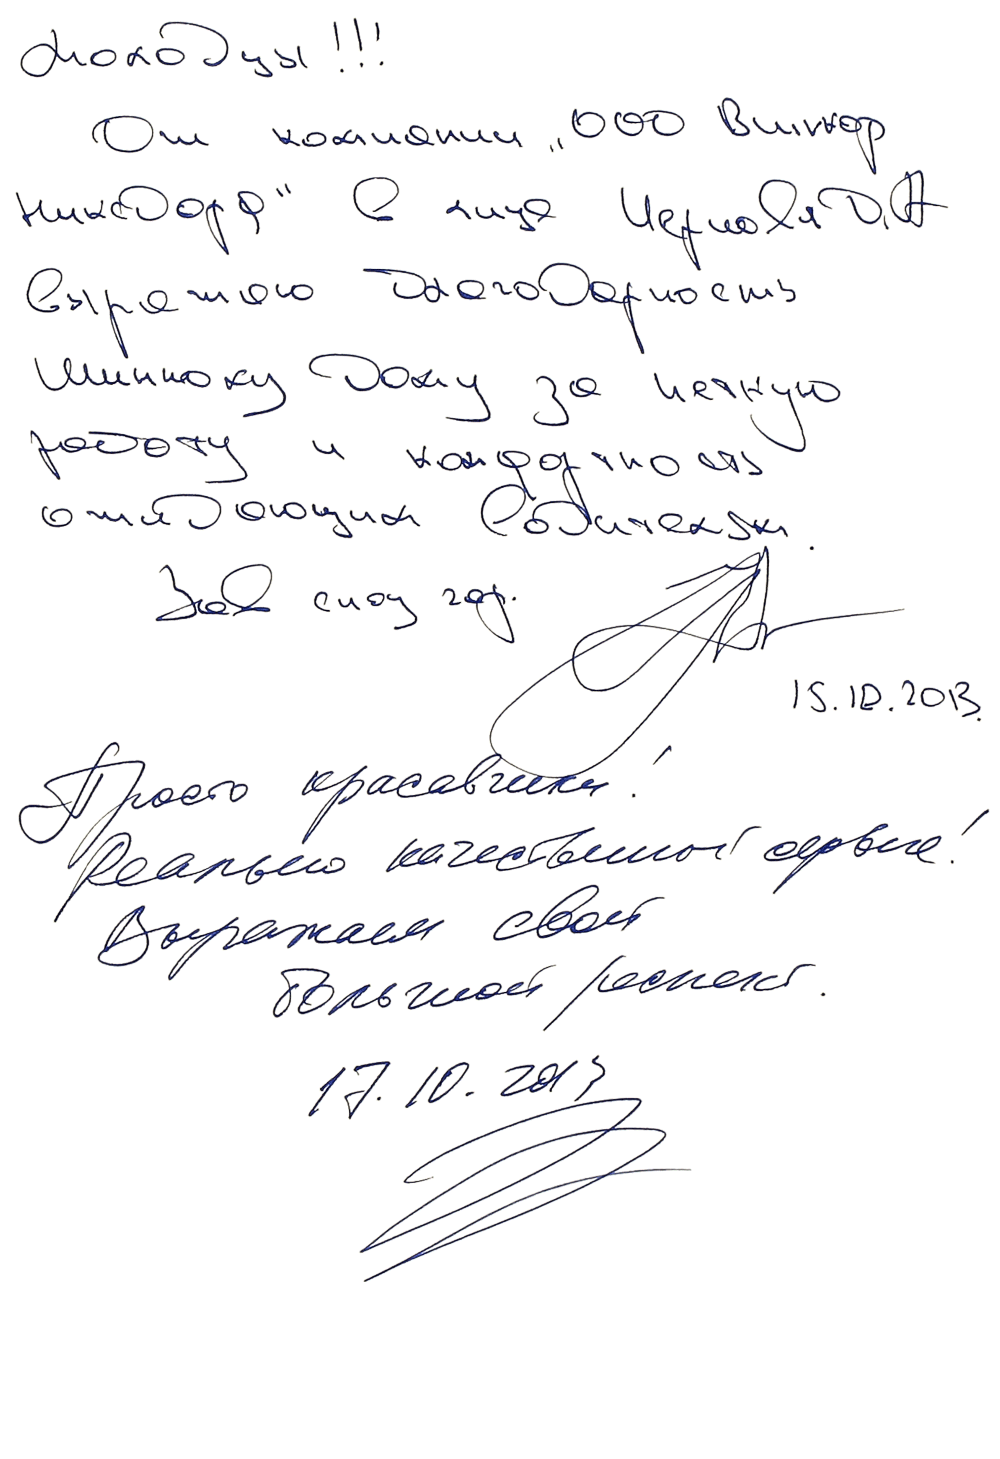 Молодцы!!!
От компании „ООО Винкор
Никсдорф" в лице Чернова Д.А
выражаю благодарность
Шинному Дому за четкую
работу и комфортность
ожидающим водителям.
15.10.2013.
Просто красавчики!
Реально качественный сервис!
Выражаем свой
большой респект.
17.10.2013